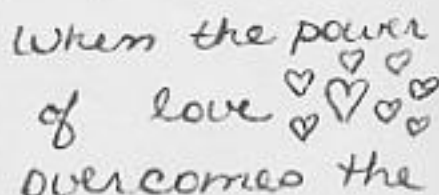 When the power
of love
overcomes the